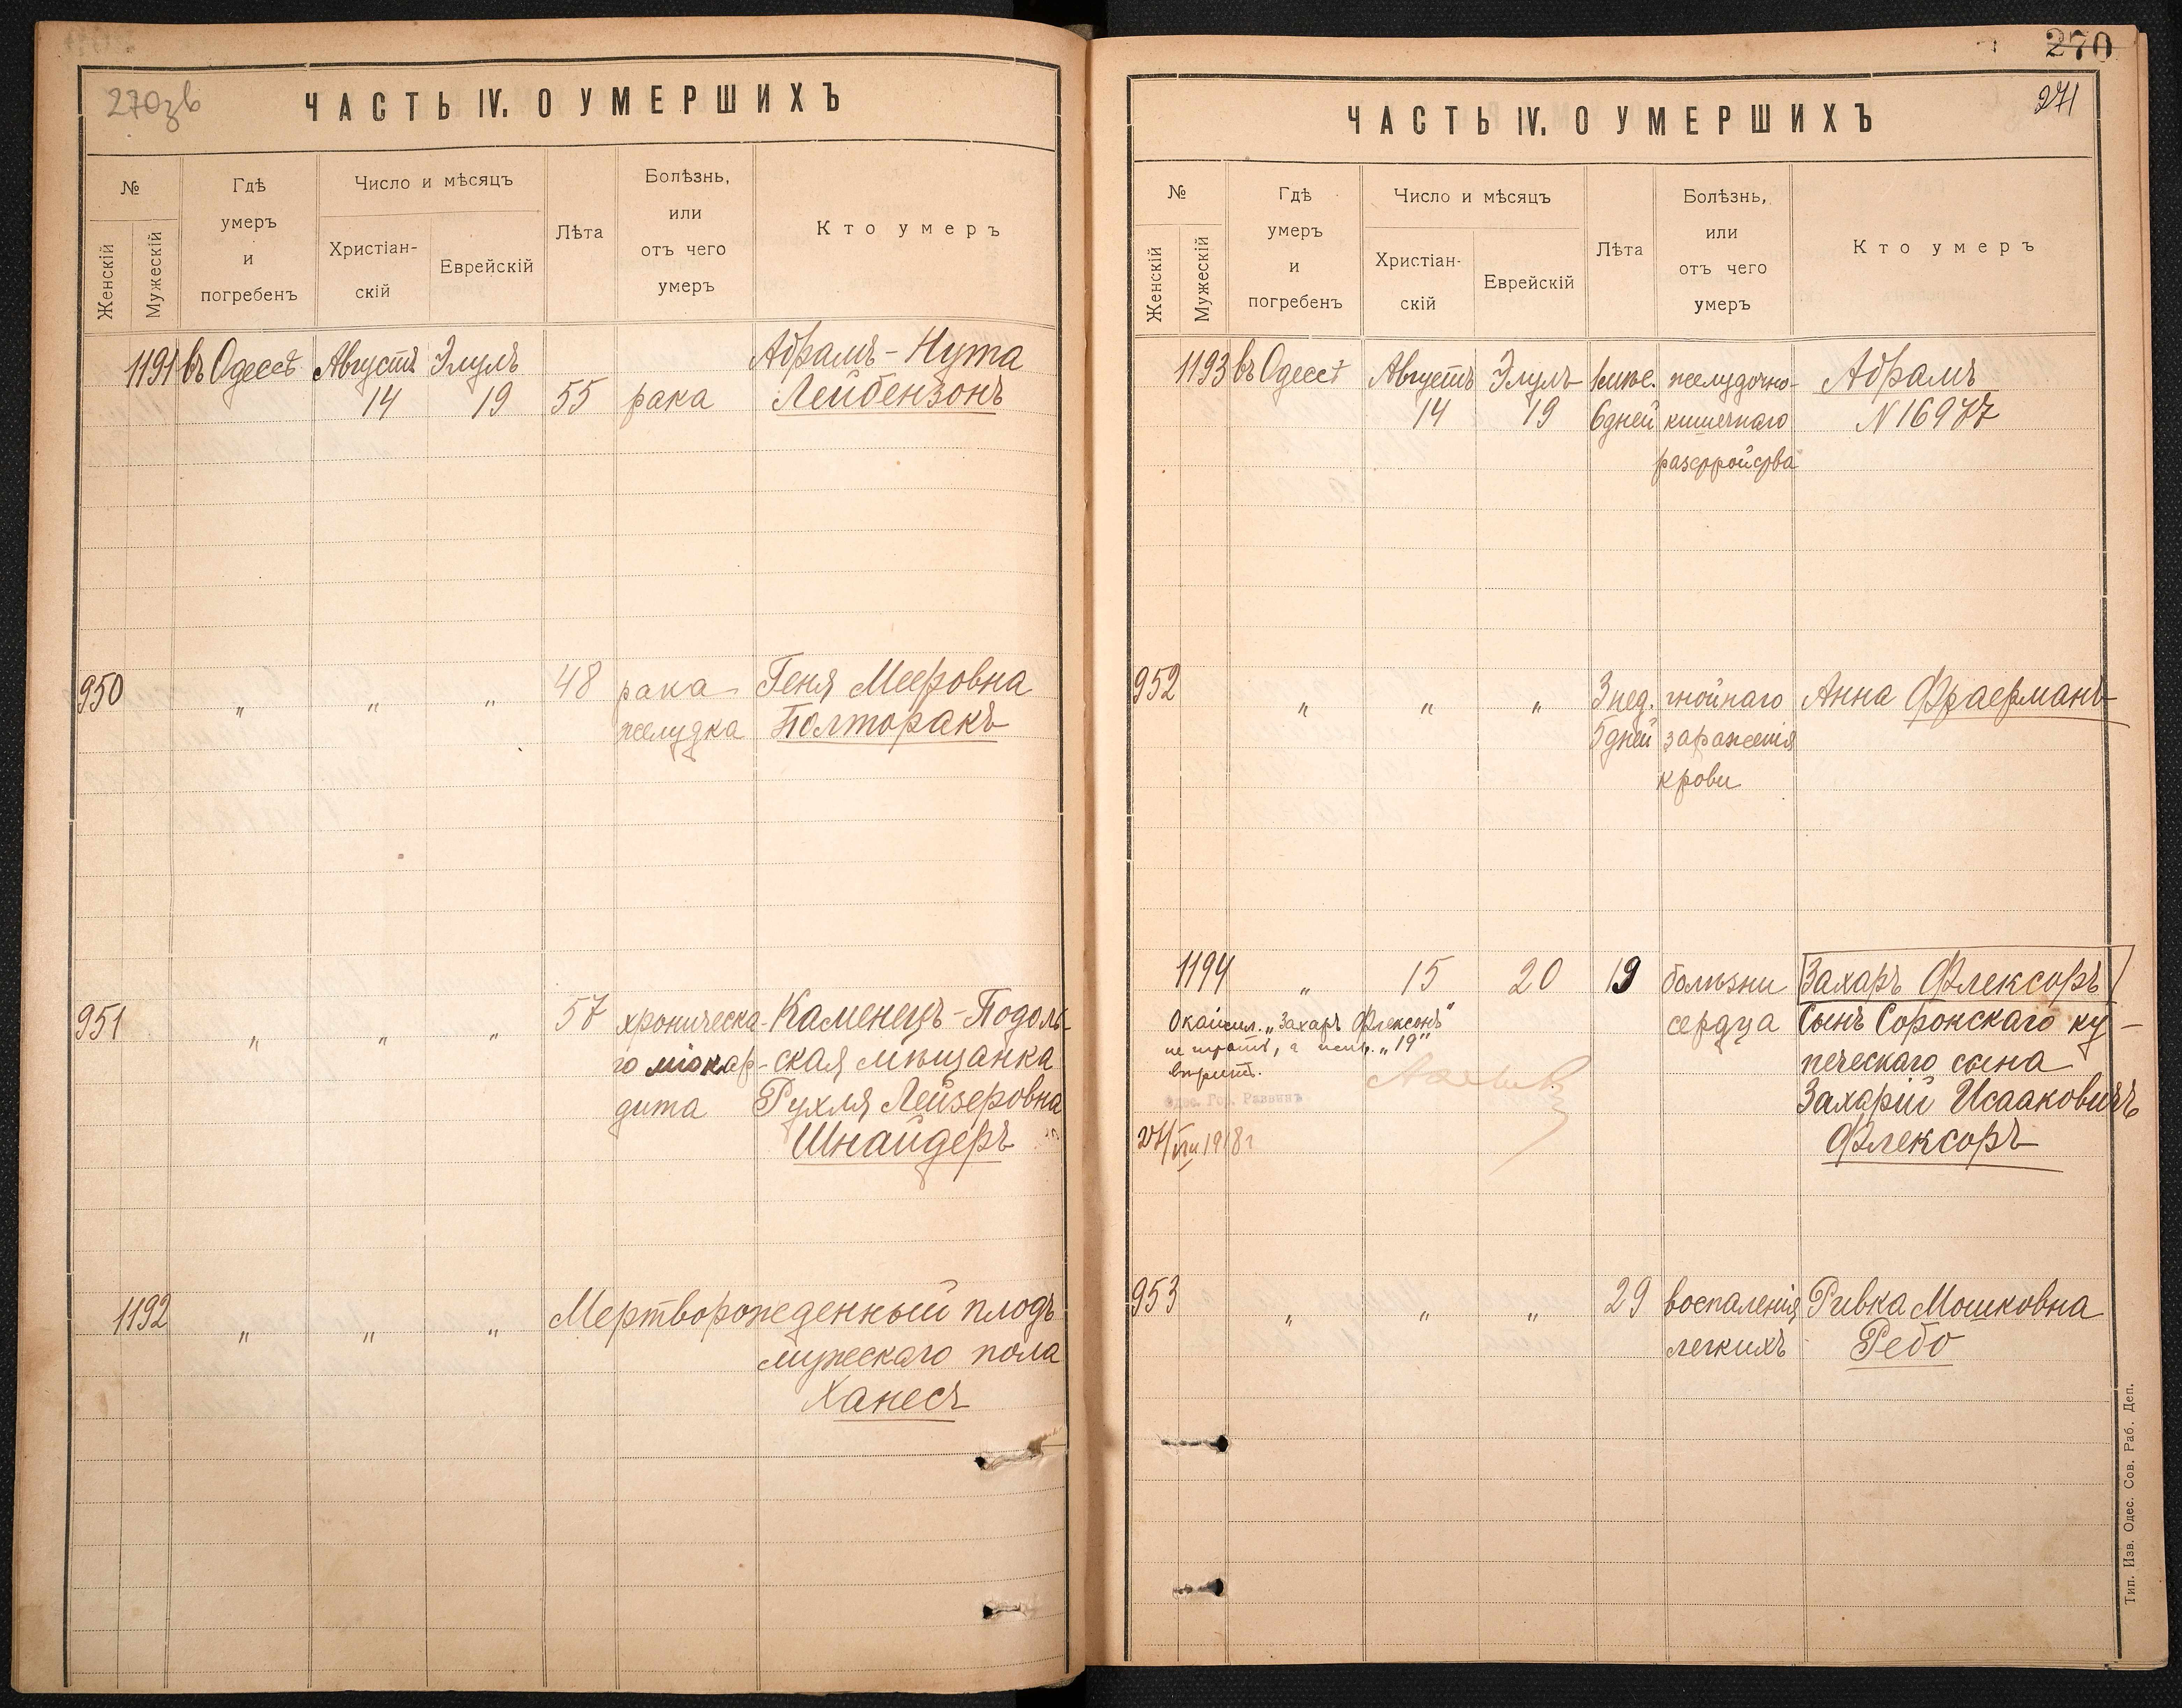 270зв
ЧАСТЬ IV. О УМЕРШИХЪ
№
Женскій
Мужескій
Гдѣ
умеръ
и
погребенъ
Число и мѣсяцъ
Христіан-
скій
Еврейскій
Лѣта
Болѣзнь,
или
отъ чего
умеръ
Кто умеръ
1191 въ Одессѣ Августъ Элулъ Абрамъ-Нута
14 19 55 рака Лейбензонъ
950 " " " 48 рака Геня Мееровна
желудка Полторакъ
951 " " " 57 хроническа- Каменецъ-Подоль-
го міокар- ская мѣщанка
дита Рухля Лейзеровна
Шнайдеръ
1192 " " " Мертворожденный плодъ
мужескаго пола
Ханесъ
270
271
ЧАСТЬ IV. О УМЕРШИХЪ
№
Женскій
Мужескій
Гдѣ
умеръ
и
погребенъ
Число и мѣсяцъ
Христіан-
скій
Еврейскій
Лѣта
Болѣзнь,
или
отъ чего
умеръ
Кто умеръ
1193 въ Одессѣ Августъ Элулъ 1 мѣс. желудочно- Абрамъ
14 19 6 дней кишечнаго N 16977
разстройства
952 " " " 3 нед. гнойнаго Анна Фраерманъ
5 дней зараженія
крови
1194 " 15 20 19 болѣзни Захаръ Флексоръ
сердца Сынъ Сорокскаго ку-
печескаго сына
Захарій Исааковичъ
Флексоръ
"Захаръ Флексоръ"
не читать, а "19"
Одес. Гор. Раввинъ
27/VIII 1918 г
953 " " " 29 воспаленія Ривка Мошковна
легкихъ Ребо
Тип. Изв. Одес. Сов. Раб. Деп.